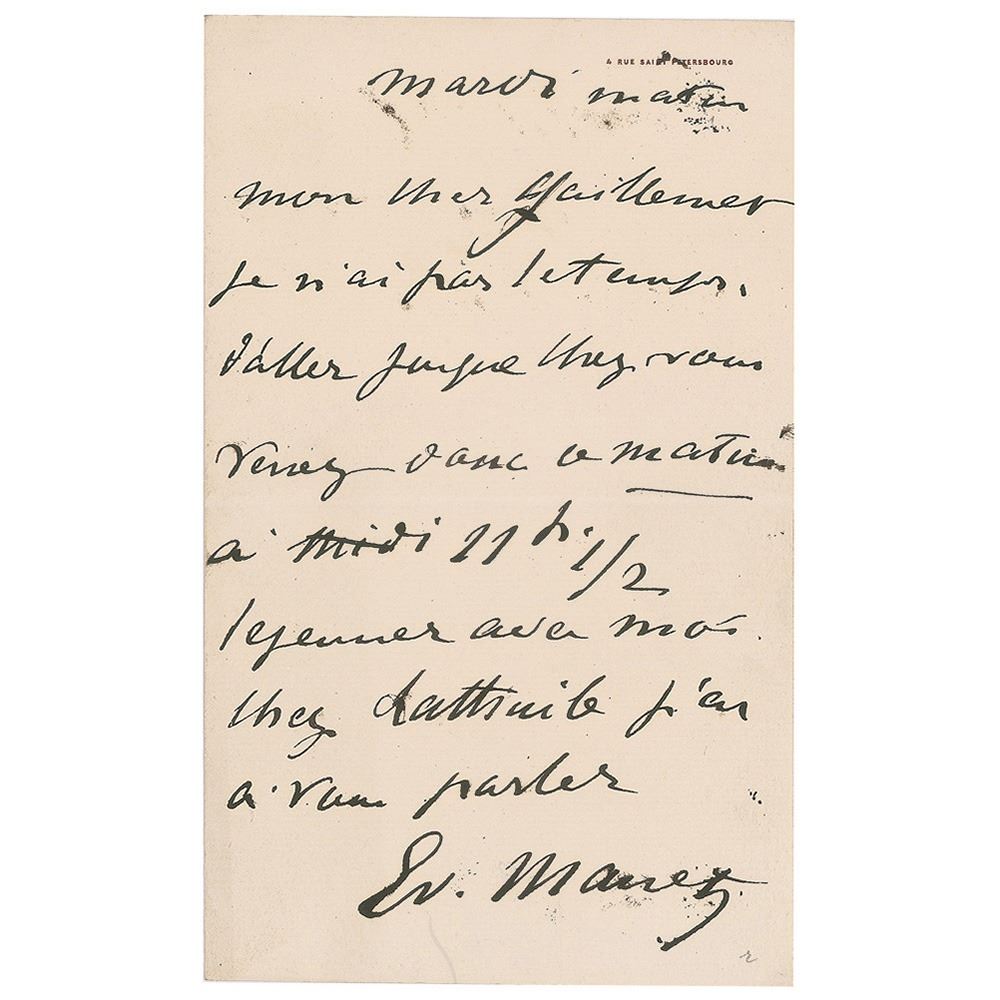 4 RUE SAINT PETERSBOURG
mardi matin
mon cher Guillemet
je n'ai pas le temps
d'aller jusque chez vous
venez donc ce matin
à midi 11 h. 1/2
dejeuner avec moi
chez Lathuile j'ai
à vous parler
Ed. Manet